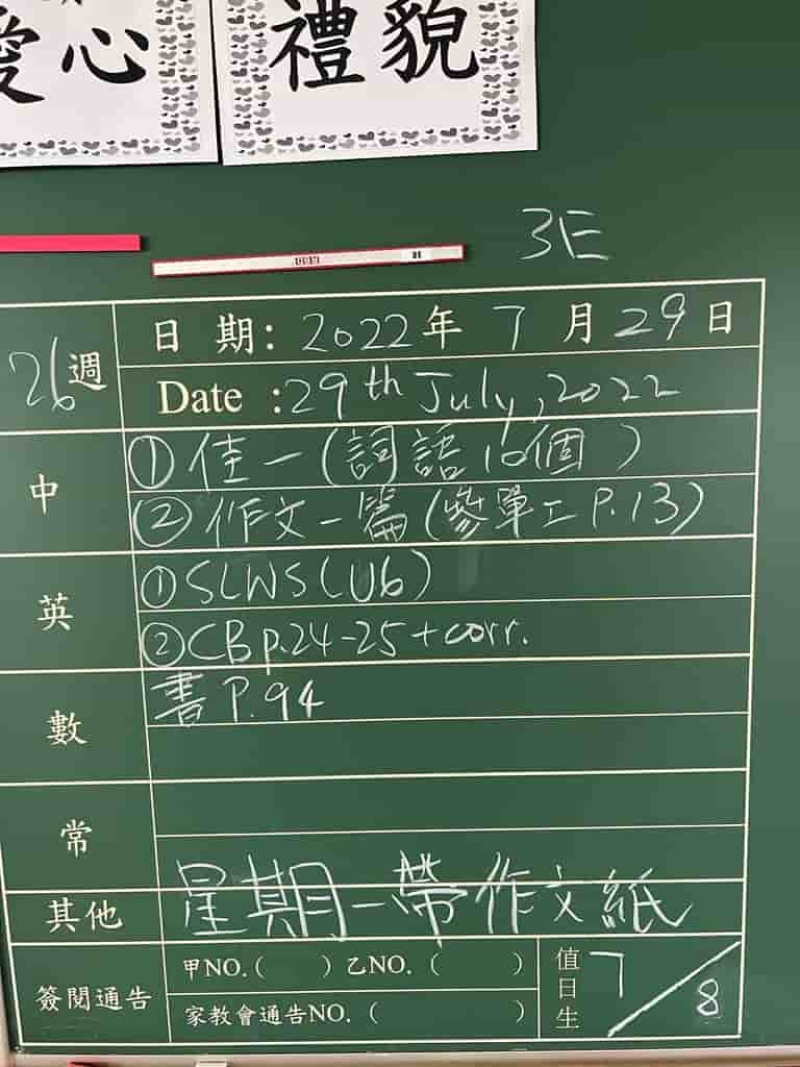 愛心
禮貌
3E
26週
日 期：2022年 7 月 29 日
Date :29th July, 2022
中
①佳一(詞語10個)
②作文一篇(參單工P.13)
英
①SLWS(U6)
②CB p.24-25+corr.
數
書P.94
常
其他
星期一帶作文紙
簽閱通告
甲NO.( ) 乙NO. ( )
家教會通告NO. ( )
值日生
7/8